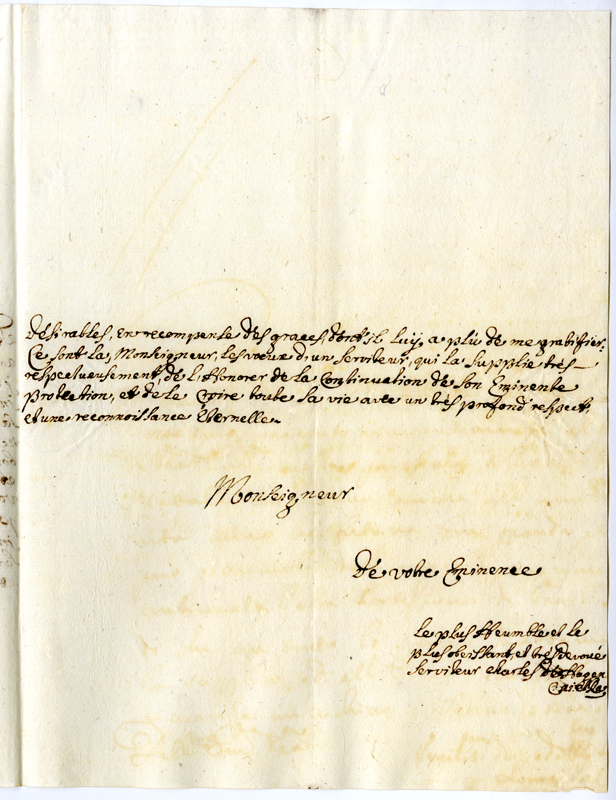 désirables, en recompense des graces, dont il luy a plû de me gratiffier.
Ce sont la, Monseigneur, les voeux d'un serviteur, qui la supplie très-
respectueusement, de l'Honorer de la Continuation de son Eminente
protection, et de le Croire toute sa vie avec un très profond respect,
et une reconnoissance Eternelle.
Monseigneur
dé votre Eminence
le plus Heumble et le
plus obeissant, et très devoué
serviteur charles